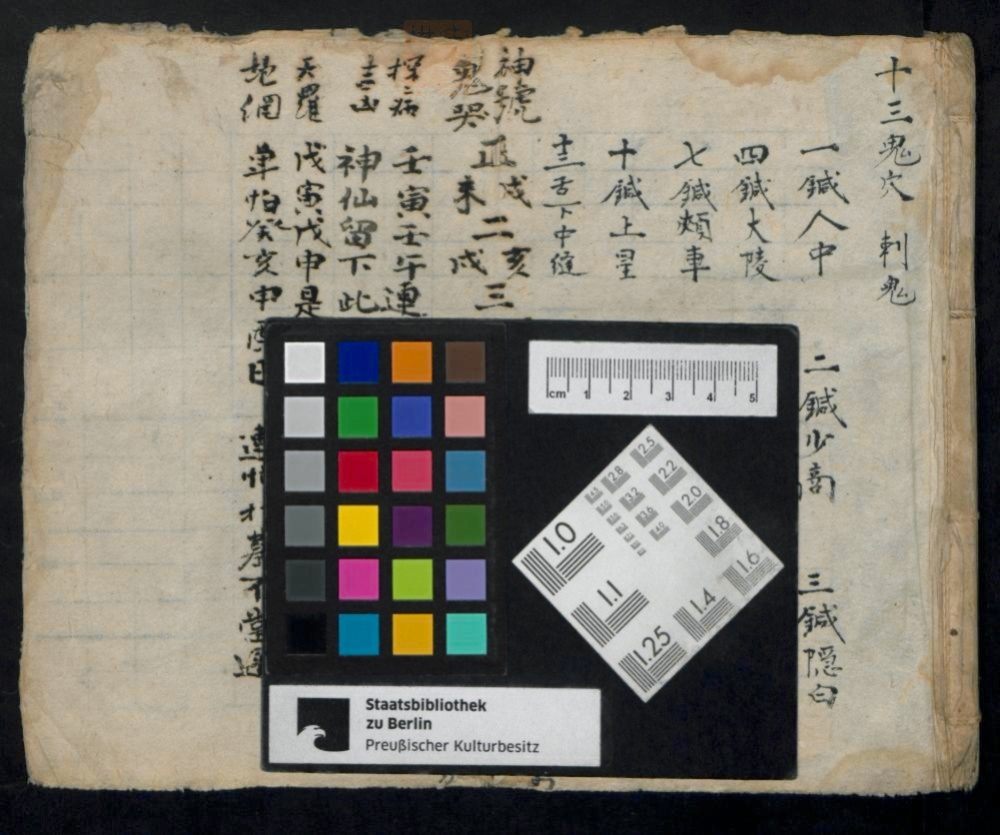 十三鬼穴 刺鬼
一鍼人中 二鍼少商 三鍼隠白
四鍼大陵
七鍼頬車
十鍼上星
十三舌下中缝
神號 正戌 二亥 三
鬼哭 未 戌
探病 壬寅壬午連
神仙留下此
天羅 戊寅戊申是
地網 单怕癸亥申酉日
cm 1 2 3 4 5
2.5
2.8 2.2
3.2 2.0
3.6 1.8
4.0 1.6
1.0
1.1 1.4
1.25
Staatsbibliothek
zu Berlin
Preußischer Kulturbesitz